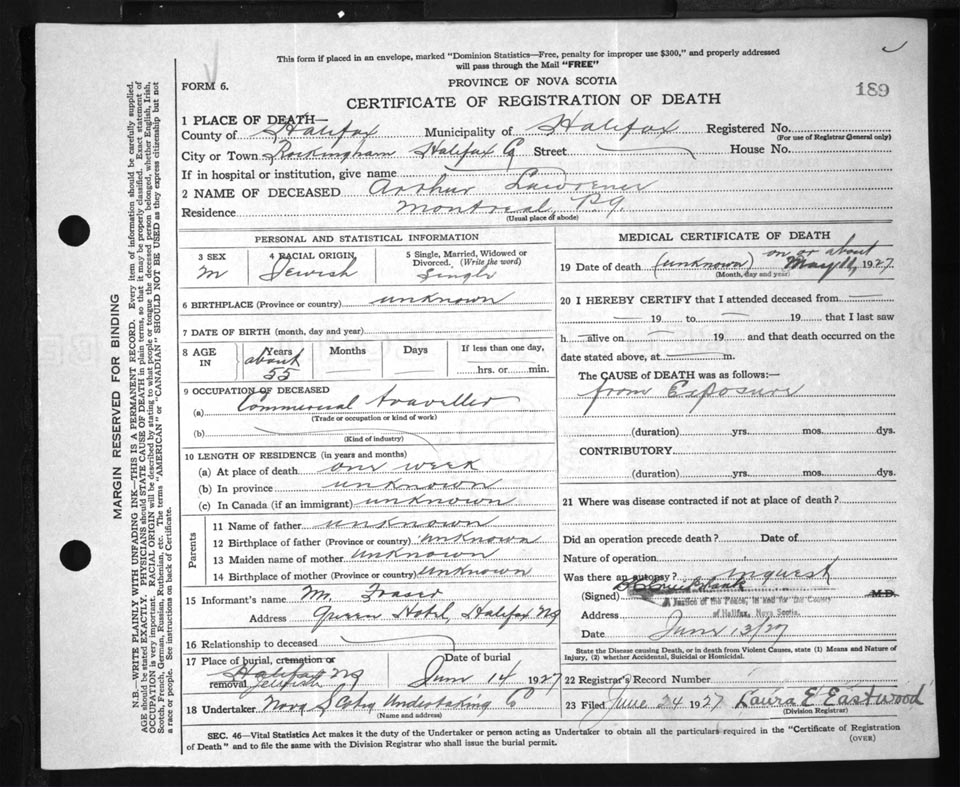 This form if placed in an envelope, marked "Dominion Statistics—Free, penalty for improper use $300," and properly addressed
will pass through the Mail "FREE"
FORM 6.
PROVINCE OF NOVA SCOTIA
189
CERTIFICATE OF REGISTRATION OF DEATH
1 PLACE OF DEATH—
County of Halifax Municipality of Halifax Registered No.
(For use of Registrar General only)
City or Town Rockingham Halifax Co Street House No.
If in hospital or institution, give name
2 NAME OF DECEASED Arthur Lawrence
Residence Montreal, P.Q.
(Usual place of abode)
PERSONAL AND STATISTICAL INFORMATION
3 SEX 4 RACIAL ORIGIN 5 Single, Married, Widowed or Divorced. (Write the word)
M Jewish Single
6 BIRTHPLACE (Province or country) unknown
7 DATE OF BIRTH (month, day and year)
8 AGE IN Years Months Days If less than one day,
about 55 hrs. or min.
9 OCCUPATION OF DECEASED
(a) Commercial Traveller
(Trade or occupation or kind of work)
(b)
(Kind of industry)
10 LENGTH OF RESIDENCE (in years and months)
(a) At place of death one week
(b) In province unknown
(c) In Canada (if an immigrant) unknown
Parents
11 Name of father unknown
12 Birthplace of father (Province or country) unknown
13 Maiden name of mother unknown
14 Birthplace of mother (Province or country) unknown
15 Informant's name Mr Fraser
Address Queen Hotel, Halifax NS
16 Relationship to deceased
17 Place of burial, cremation or removal Date of burial
Halifax NS Jewish June 14 1927
18 Undertaker Nova Scotia Undertaking Co
(Name and address)
MEDICAL CERTIFICATE OF DEATH
19 Date of death (unknown) on or about May 11, 1927
(Month, day and year)
20 I HEREBY CERTIFY that I attended deceased from
19 to 19 that I last saw
h alive on 19 and that death occurred on the
date stated above, at m.
The CAUSE of DEATH was as follows:—
from Exposure
(duration) yrs. mos. dys.
CONTRIBUTORY
(duration) yrs. mos. dys.
21 Where was disease contracted if not at place of death?
Did an operation precede death? Date of
Nature of operation
Was there an autopsy? Inquest
(Signed) M.D.
A Justice of the Peace, in and for the County
of Halifax, Nova Scotia.
Address
Date June 13/27
State the Disease causing Death, or in death from Violent Causes, state (1) Means and Nature of
Injury, (2) whether Accidental, Suicidal or Homicidal.
22 Registrar's Record Number
23 Filed June 24 1927 Laura E Eastwood
(Division Registrar)
SEC. 46—Vital Statistics Act makes it the duty of the Undertaker or person acting as Undertaker to obtain all the particulars required in the "Certificate of Registration
of Death" and to file the same with the Division Registrar who shall issue the burial permit.
(OVER)
MARGIN RESERVED FOR BINDING
N.B.—WRITE PLAINLY WITH UNFADING INK—THIS IS A PERMANENT RECORD. Every item of information should be carefully supplied.
AGE should be stated EXACTLY. PHYSICIANS should STATE CAUSE OF DEATH in plain terms, so that it may be properly classified. Exact statement of
OCCUPATION is very important. RACIAL ORIGIN will be described by stating to what people or tongue the deceased person belonged, whether English, Irish,
Scotch, French, German, Russian, Ruthenian, etc. The terms "AMERICAN" or "CANADIAN" SHOULD NOT BE USED as they express citizenship but not
a race or people. See instructions on back of Certificate.